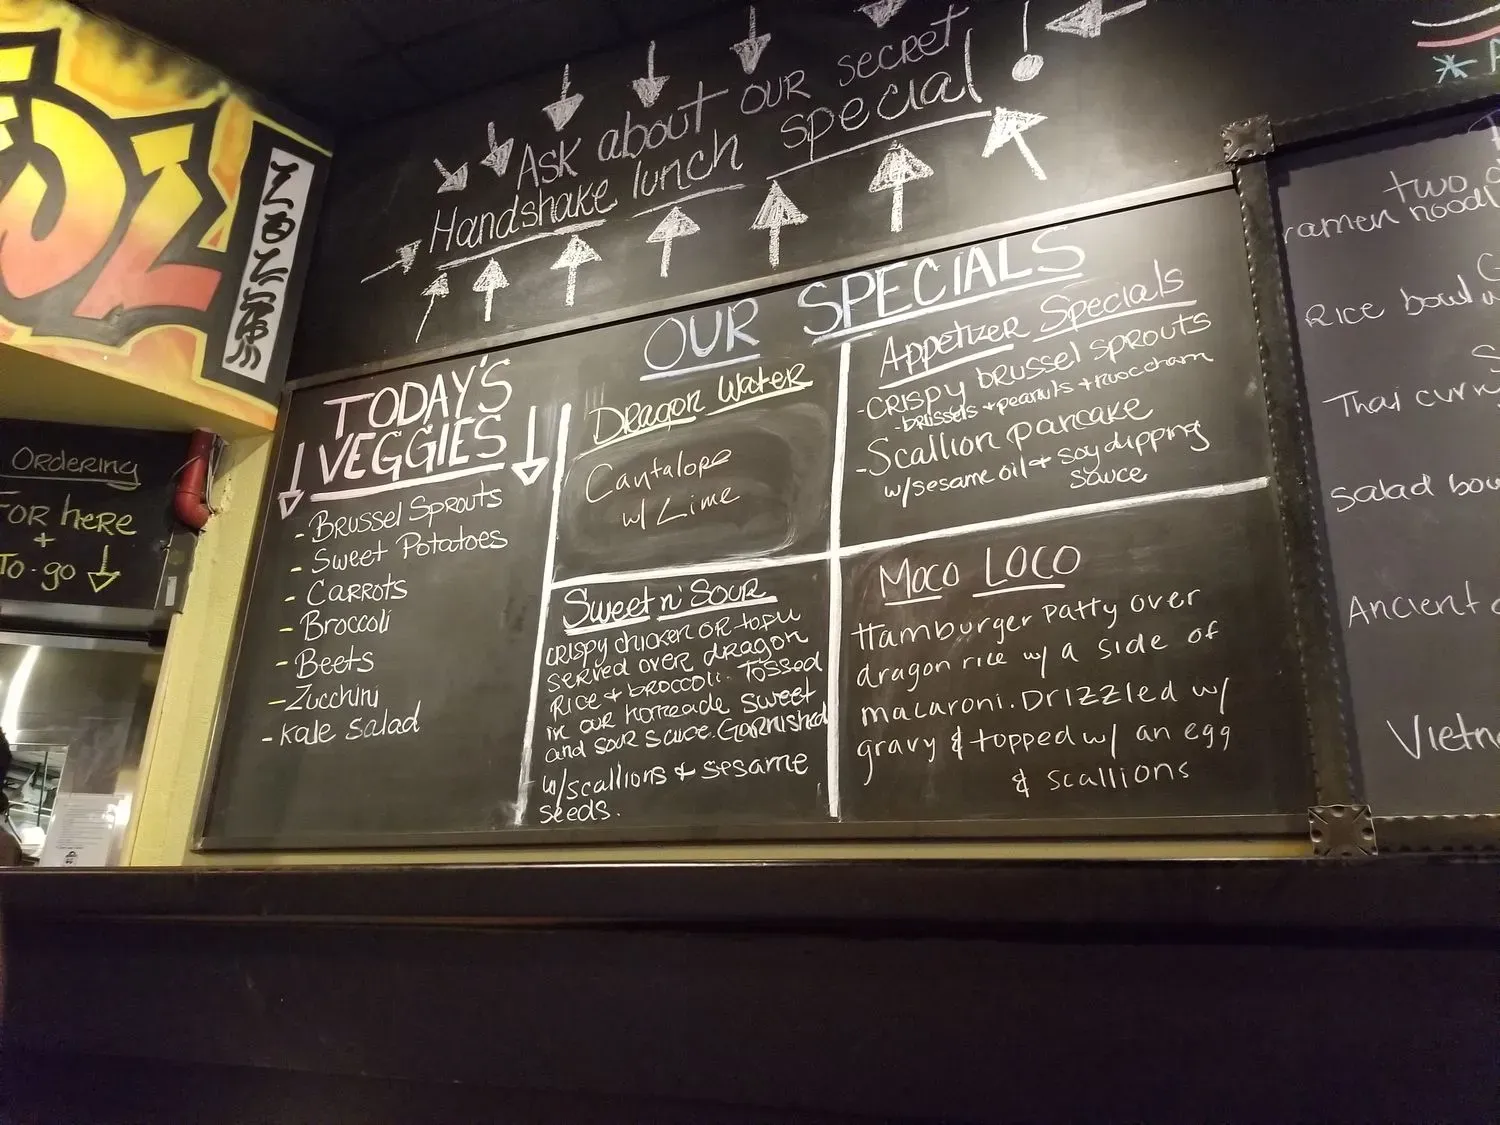 Ask about our secret
Handshake lunch special!
Ordering
For here
+
To-go
TODAY'S
VEGGIES
- Brussel Sprouts
- Sweet Potatoes
- Carrots
- Broccoli
- Beets
- Zucchini
- Kale Salad
OUR SPECIALS
Dragon Water
Cantalope
w/ Lime
Appetizer Specials
- Crispy brussel sprouts
- brussels + peanuts + nuoc cham
- Scallion pancake
w/sesame oil + soy dipping
sauce
Sweet n' Sour
crispy chicken or tofu
served over dragon
rice + broccoli. Tossed
in our homeade sweet
and sour sauce. Garnished
w/scallions & sesame
seeds.
Moco LOCO
Hamburger patty over
dragon rice w/ a side of
macaroni. Drizzled w/
gravy & topped w/ an egg
& scallions
two
ramen
Rice bowl
Thai
Salad
Ancient